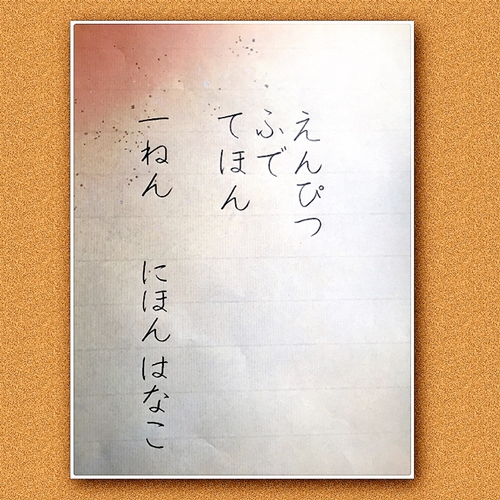 えんぴつ
ふで
てほん
一ねん にほん はなこ